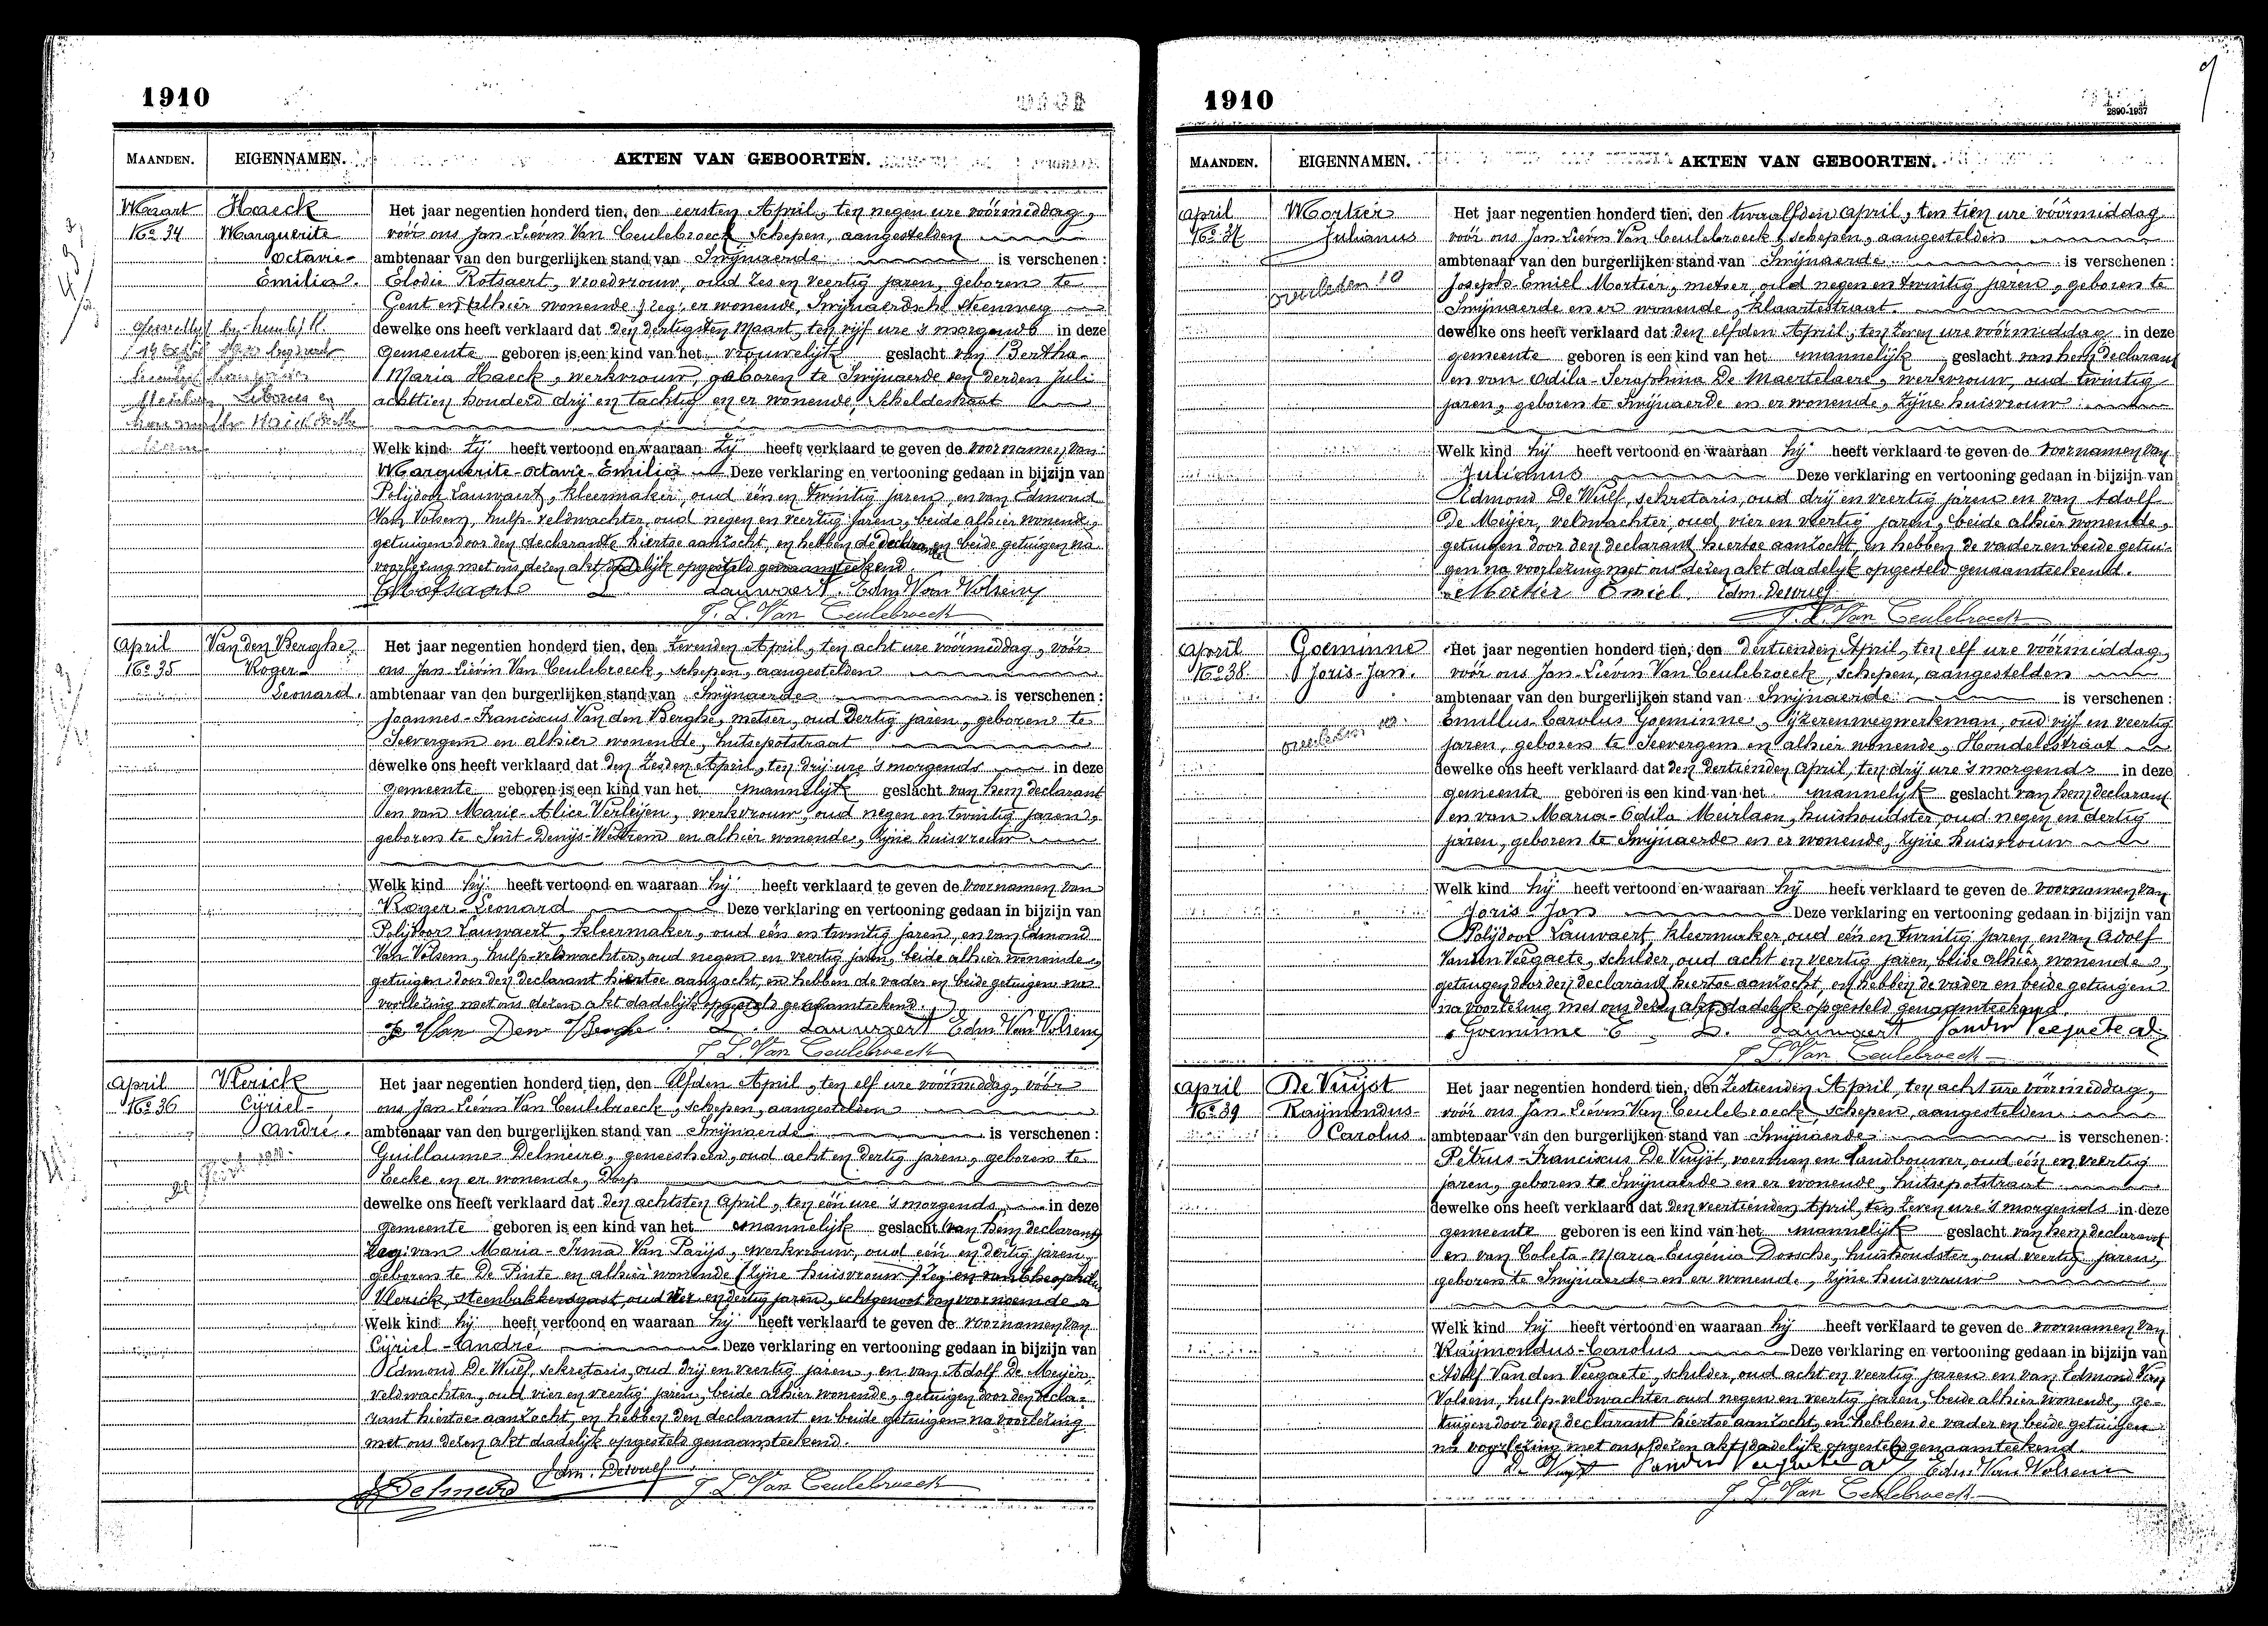 1910
MAANDEN. EIGENNAMEN. AKTEN VAN GEBOORTEN.
Maart
No 34
Haeck
Marguerite
Octavie-
Emilia.
Het jaar negentien honderd tien, den eersten April, ten negen ure vóórmiddag,
vóór ons Jan-Liévin Van Ceulebroeck, schepen, aangestelden
ambtenaar van den burgerlijken stand van Swijnaerde is verschenen:
Elodie Rotsaert, vroedvrouw, oud zes en veertig jaren, geboren te
Gent en alhier wonende, zeg: er wonende, Swijnaerdsche Steenweg
dewelke ons heeft verklaard dat den dertigsten Maart, ten vijf ure 's morgends in deze
gemeente geboren is een kind van het vrouwelijk geslacht van Bertha-
Maria Haeck, werkvrouw, geboren te Swijnaerde den derden Juli
achttien honderd drij en tachtig en er wonende, Scheldestraat
Welk kind zij heeft vertoond en waaraan zij heeft verklaard te geven de voornamen van
Marguerite-Octavie-Emilia Deze verklaring en vertooning gedaan in bijzijn van
Polijdoor Lauwaert, kleermaker, oud één en twintig jaren en van Edmond
Van Volsem, hulp-veldwachter, oud negen en veertig jaren, beide alhier wonende,
getuigen door den declarante hiertoe aanzocht, en hebben de declarante en beide getuigen na
voorlezing met ons dezen akt dadelijk opgesteld genaamteekend.
E Rotsaert L. Lauwaert. Edm Van Volsem
J. L. Van Ceulebroeck
April
No 35
Van den Berghe
Roger-
Leonard.
Het jaar negentien honderd tien, den zevenden April, ten acht ure vóórmiddag, vóór
ons Jan-Liévin Van Ceulebroeck, schepen, aangestelden
ambtenaar van den burgerlijken stand van Swijnaerde is verschenen:
Joannes-Franciscus Van den Berghe, metser, oud dertig jaren, geboren te
Seevergem en alhier wonende, hutsepotstraat
dewelke ons heeft verklaard dat den zesden April, ten drij ure 's morgends in deze
gemeente geboren is een kind van het mannelijk geslacht van hem declarant
en van Marie-Alice Verleijen, werkvrouw, oud negen en twintig jaren,
geboren te Sint-Denijs-Westrem en alhier wonende, zijne huisvrouw
Welk kind hij heeft vertoond en waaraan hij heeft verklaard te geven de voornamen van
Roger-Leonard Deze verklaring en vertooning gedaan in bijzijn van
Polijdoor Lauwaert, kleermaker, oud één en twintig jaren, en van Edmond
Van Volsem, hulp-veldwachter, oud negen en veertig jaren, beide alhier wonende,
getuigen door den declarant hiertoe aanzocht, en hebben de vader en beide getuigen na
voorlezing met ons dezen akt dadelijk opgesteld genaamteekend.
Van Den Berghe. L. Lauwaert Edm Van Volsem
J L. Van Ceulebroeck
April
No 36
Vlerick
Cyriel-
André.
Het jaar negentien honderd tien, den elfden April, ten elf ure vóórmiddag, vóór
ons Jan-Liévin Van Ceulebroeck, schepen, aangestelden
ambtenaar van den burgerlijken stand van Swijnaerde is verschenen:
Guillaume Delmeire, geneesheer, oud acht en dertig jaren, geboren te
Eecke en er wonende, Dorp
dewelke ons heeft verklaard dat den achtsten April, ten één ure 's morgends, in deze
gemeente geboren is een kind van het mannelijk geslacht van hem declarant
zeg: van Maria-Irma Van Parijs, werkvrouw, oud één en dertig jaren,
geboren te De Pinte en alhier wonende (zijne huisvrouw) zeg: en van Theophiel
Vlerick, steenbakkersgast, oud vier en dertig jaren, echtgenoot van voornoemde
Welk kind hij heeft vertoond en waaraan hij heeft verklaard te geven de voornamen van
Cyriel-André Deze verklaring en vertooning gedaan in bijzijn van
Edmond De Wulf, sekretaris, oud drij en veertig jaren, en van Adolf De Meijer,
veldwachter, oud vier en veertig jaren, beide alhier wonende, getuigen door den decla-
rant hiertoe aanzocht, en hebben den declarant en beide getuigen na voorlezing
met ons dezen akt dadelijk opgesteld genaamteekend.
Edm. Dewulf
J L Van Ceulebroeck
1910
2890-1937
MAANDEN. EIGENNAMEN. AKTEN VAN GEBOORTEN.
April
No 37
Mortier
Julianus
overleden 10
Het jaar negentien honderd tien, den twaalfden April, ten tien ure vóórmiddag
vóór ons Jan-Liévin Van Ceulebroeck, schepen, aangestelden
ambtenaar van den burgerlijken stand van Swijnaerde is verschenen:
Joseph-Emiel Mortier, metser oud negen en twintig jaren, geboren te
Swijnaerde en er wonende, klaartestraat.
dewelke ons heeft verklaard dat den elfden April, ten zeven ure vóórmiddag in deze
gemeente geboren is een kind van het mannelijk geslacht van hem declarant
en van Odila-Seraphina De Maertelaere, werkvrouw, oud twintig
jaren, geboren te Swijnaerde en er wonende, zijne huisvrouw
Welk kind hij heeft vertoond en waaraan hij heeft verklaard te geven de voornamen van
Julianus Deze verklaring en vertooning gedaan in bijzijn van
Edmond De Wulf, sekretaris, oud drij en veertig jaren en van Adolf
De Meijer, veldwachter, oud vier en veertig jaren, beide alhier wonende,
getuigen door den declarant hiertoe aanzocht, en hebben de vader en beide getui-
gen na voorlezing met ons dezen akt dadelijk opgesteld genaamteekend.
Mortier Emiel. Edm. Dewulf
J. L. Van Ceulebroeck
April
No 38
Goeminne
Joris-Jan.
overleden
Het jaar negentien honderd tien, den dertienden April, ten elf ure vóórmiddag,
vóór ons Jan-Liévin Van Ceulebroeck, schepen, aangestelden
ambtenaar van den burgerlijken stand van Swijnaerde is verschenen:
Emillus-Carolus Goeminne, ijzerenwegwerkman, oud vijf en veertig
jaren, geboren te Seevergem en alhier wonende, Hondelestraat
dewelke ons heeft verklaard dat den dertienden April, ten drij ure 's morgends in deze
gemeente geboren is een kind van het mannelijk geslacht van hem declarant
en van Maria-Odila Meirlaen, huishoudster oud negen en dertig
jaren, geboren te Swijnaerde en er wonende, zijne huisvrouw
Welk kind hij heeft vertoond en waaraan hij heeft verklaard te geven de voornamen van
Joris-Jan Deze verklaring en vertooning gedaan in bijzijn van
Polijdoor Lauwaert, kleermaker, oud één en twintig jaren en van Adolf
Vanden Veegaete, schilder, oud acht en veertig jaren, beide alhier wonende,
getuigen door den declarant hiertoe aanzocht, en hebben de vader en beide getuigen
na voorlezing met ons dezen akt dadelijk opgesteld genaamteekend.
Goeminne E L. Lauwaert Vanden Veegaete Ad
J L Van Ceulebroeck
April
No 39
De Vuijst
Raijmondus-
Carolus.
Het jaar negentien honderd tien, den zestienden April, ten acht ure vóórmiddag,
vóór ons Jan-Liévin Van Ceulebroeck, schepen, aangestelden
ambtenaar van den burgerlijken stand van Swijnaerde is verschenen:
Petrus-Franciscus De Vuijst, voerman en landbouwer, oud één en veertig
jaren, geboren te Swijnaerde en er wonende, hutsepotstraat
dewelke ons heeft verklaard dat den veertienden April, ten zeven ure 's morgends in deze
gemeente geboren is een kind van het mannelijk geslacht van hem declarant
en van Coleta-Maria-Eugenia Dossche, huishoudster, oud veertig jaren,
geboren te Swijnaerde en er wonende, zijne huisvrouw
Welk kind hij heeft vertoond en waaraan hij heeft verklaard te geven de voornamen van
Raijmondus-Carolus Deze verklaring en vertooning gedaan in bijzijn van
Adolf Vanden Veegaete, schilder, oud acht en veertig jaren en van Edmond Van
Volsem, hulp-veldwachter oud negen en veertig jaren, beide alhier wonende, ge-
tuigen door den declarant hiertoe aanzocht, en hebben de vader en beide getuigen
na voorlezing met ons dezen akt dadelijk opgesteld genaamteekend.
De Vuyst Vanden Veegaete Ad Edm Van Volsem
J. L. Van Ceulebroeck